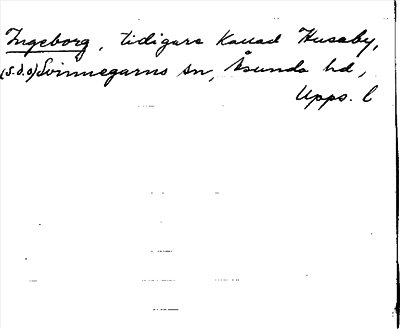 Ingeborg, tidigare kallad Husaby,
(s.d.o) Svinnegarns sn, Åsunda hd,
Upps. l